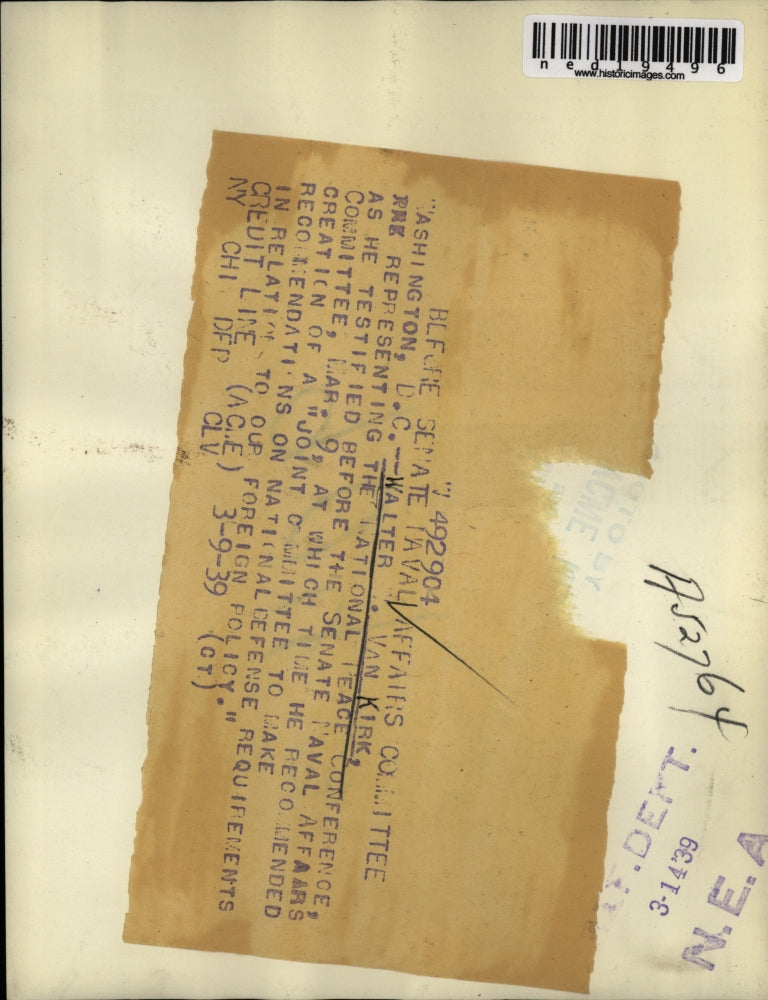 ned19496
www.historicimages.com
W 492904
BEFORE SENATE NAVAL AFFAIRS COMMITTEE
WASHINGTON, D.C.--WALTER . VAN KIRK,
REPRESENTING THE NATIONAL PEACE CONFERENCE,
AS HE TESTIFIED BEFORE THE SENATE NAVAL AFFAIRS
COMMITTEE, MAR. 9, AT WHICH TIME HE RECOMMENDED
CREATION OF A "JOINT COMMITTEE TO MAKE
RECOMMENDATIONS ON NATIONAL DEFENSE REQUIREMENTS
IN RELATION TO OUR FOREIGN POLICY."
CREDIT LINE (ACME) 3-9-39 (CT)
NY CHI DFP CLV
PHOTO BY
ACME
A52764
DEPT.
3-14 39
N.E.A